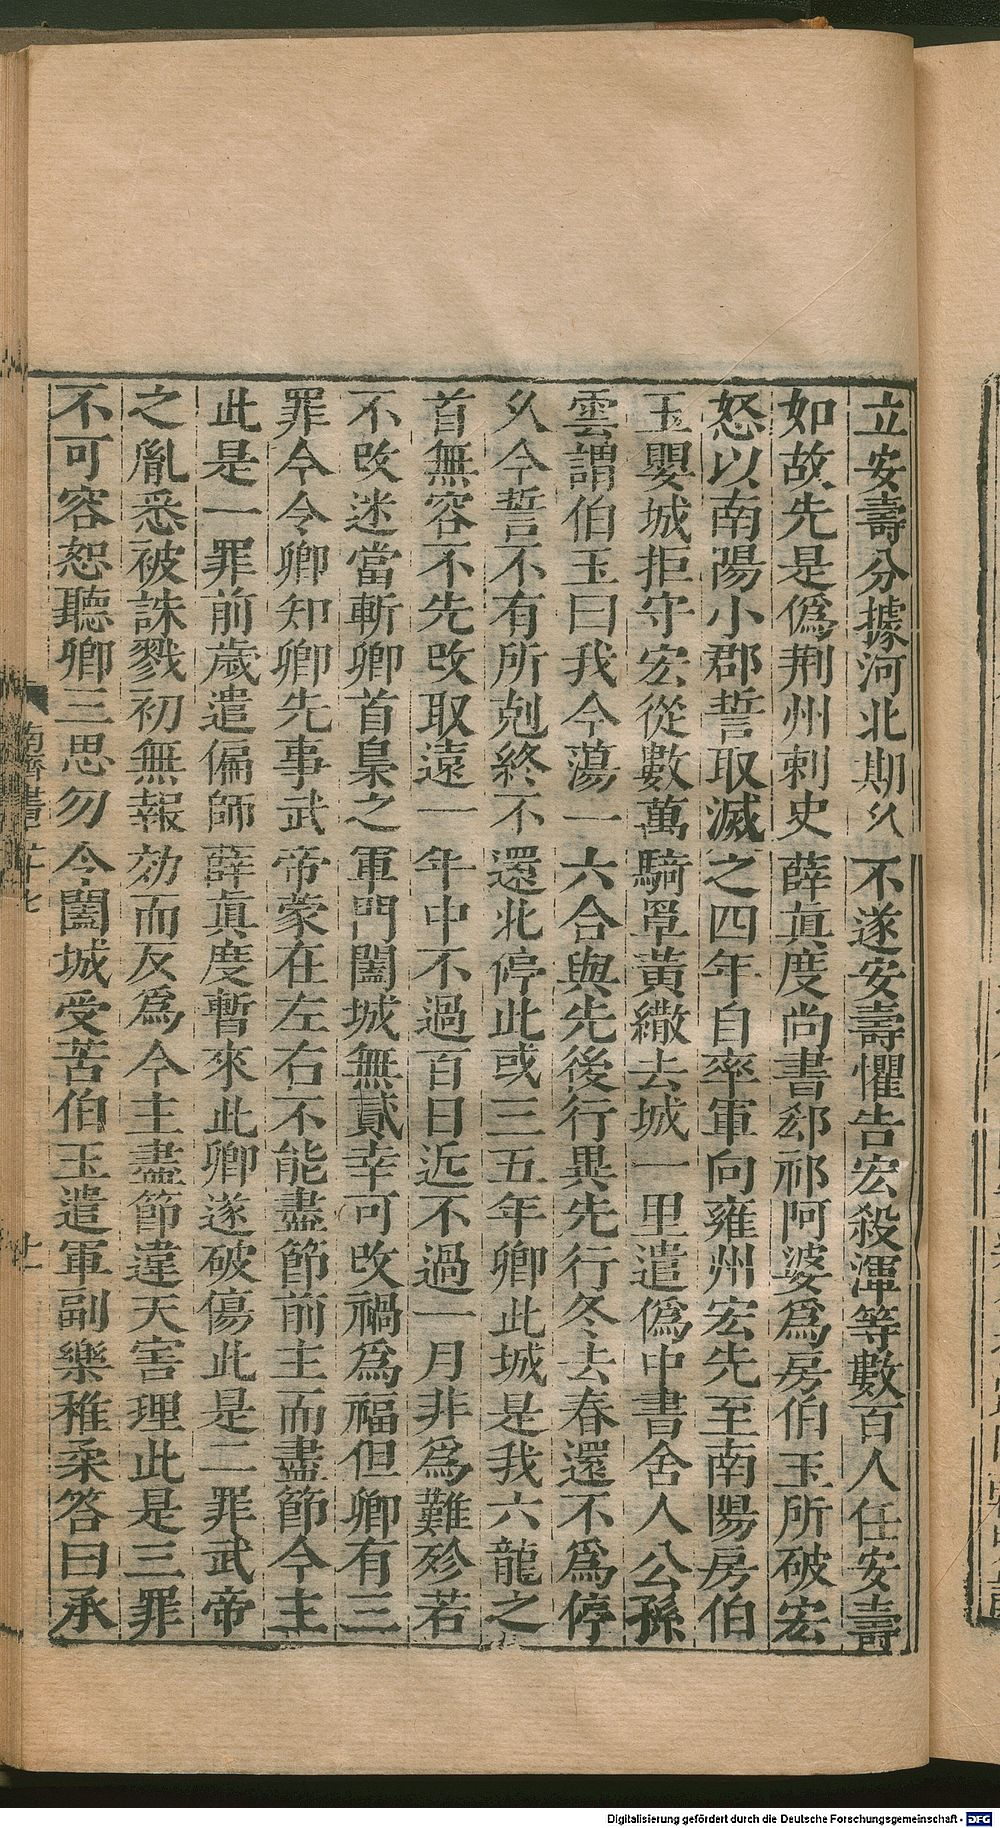 立安壽分據河北期久不遂安壽懼告宏殺渾等數百人任安壽
如故先是偽荆州刺史薛眞度尚書郄祁阿婆爲房伯玉所破宏
怒以南陽小郡誓取滅之四年自率軍向雍州宏先至南陽房伯
玉嬰城拒守宏從數萬騎罩黃繖去城一里遣偽中書舍人公孫
雲謂伯玉曰我今蕩一六合與先後行異先行冬去春還不爲停
久今誓不有所剋終不還北停此或三五年卿此城是我六龍之
首無容不先攺取遠一年中不過百日近不過一月非爲難殄若
不攺迷當斬卿首梟之軍門闔城無貳幸可攺禍爲福但卿有三
罪今令卿知卿先事武帝蒙在左右不能盡節前主而盡節今主
此是一罪前歲遣偏師薛眞度暫來此卿遂破傷此是二罪武帝
之胤悉被誅戮初無報効而反爲今主盡節違天害理此是三罪
不可容恕聽卿三思勿令闔城受苦伯玉遣軍副樂稚柔答曰承
南齊書
十一
Digitalisierung gefördert durch die Deutsche Forschungsgemeinschaft - DFG